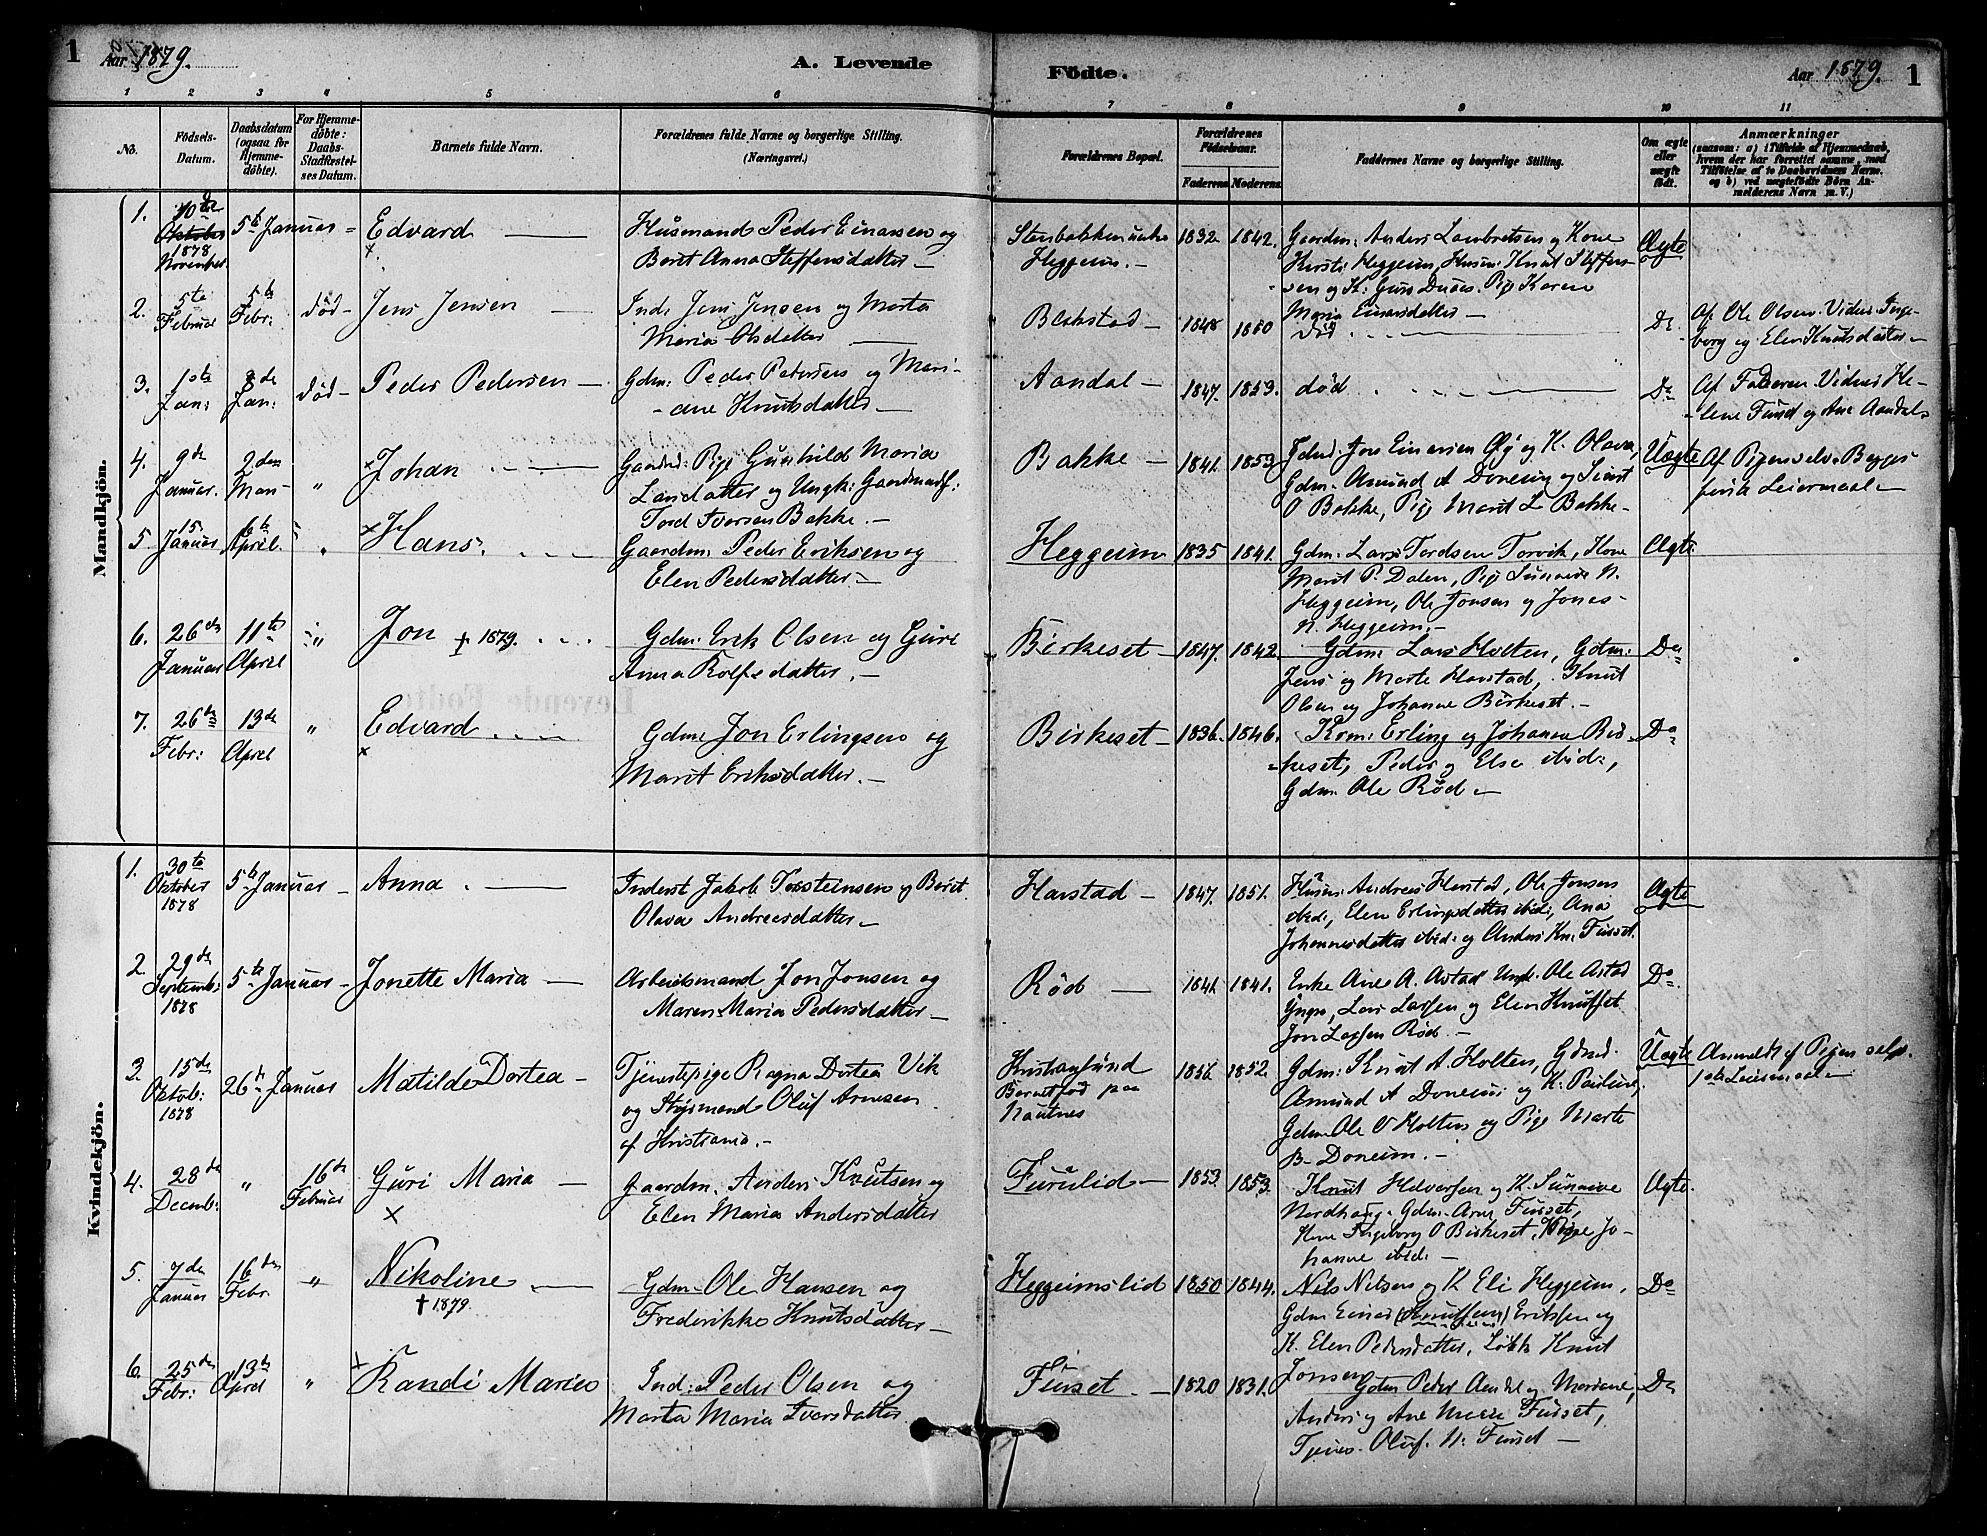 1 Aar 1879. A. Levende Födte. Aar 1879. 1
1 2 3 4 5 6 7 8 9 10 11
No.
Födsels-
Datum.
Daabsdatum
(ogsaa for
Hjemme-
döbte).
For Hjemme-
döbte:
Daabs-
Stadfæstel-
ses Datum.
Barnets fulde Navn.
Forældrenes fulde Navne og borgerlige Stilling.
(Næringsvei.)
Forældrenes Bopæl.
Forældrenes
Födselsaar.
Faderens Moderens
Faddernes Navne og borgerlige Stilling.
Om ægte
eller
uægte
födt.
Anmærkninger
(saasom: a) i Tilfælde af Hjemmedaab,
hvem der har forrettet samme, med
Tilföielse af to Daabsvidners Navne.
og b) ved uægtefödte Börn An-
melderens Navn m. V.)
Mandkjön.
1.
10de
Oktober
1878
November
5te Januar
Edvard
×
Husmand Peder Einarsen og
Beret Anna Steffensdatter
Heggeim.
1832 1842.
Gaardm: Anders Lambretsen og Kone
Kirsti Heggeim, Husm: Knut Steffen-
sen og K: Guri Pige Karen
Maria Einarsdatter
Ægte
2.
5te
Februar
5te
Febr:
död
Jens Jensen
Ind: Jens Jensen og Marta
Maria Olsdatter
Blakstad
1848 1850
död
Do
Af Ole Olsen. Vidner Inge-
borg og Elen Knutsdatter
3.
1ste
Jan:
8de
Jan:
död
Peder Pedersen
Gdm: Peder Petersen og Mari-
ane Knutsdatter
Aandal
1847. 1853.
död
Do
Af Faderen. Vidner He-
lene Furset og Ane Aandal
4.
9de
Januar.
2den
Mars
"
× Johan
Gaardm: Pige Gunhild Maria
Larsdatter og Ungk: Gaardmandss:
Tord Iversen Bakke.
Bakke
1841. 1853
Gdm: Jon Einarsen Øy og K. Olava,
Gdm. Amund A Doneim og Sivert
O Bakke, Pige Marit L Bakke
Uægte
Af Pigen selv. Begges
første Leiermaal
5.
15
Januar
6te
April.
"
× Hans
Gaardm: Peder Eriksen og
Elen Pedersdatter
Heggeim
1835 1841.
Gdm: Lars Tordsen Torvik, Kone
Marit P. Dalen, Pige Sunneva N.
Heggeim, Ole Jonsen og Jonas
N. Heggeim.
Ægte
6.
26de
Januar
11te
April
"
Jon † 1879.
Gdm: Erik Olsen og Guri
Anna Rolfsdatter
Birkeset
1847. 1842
Gdm Lars Holten, Gdm:
Jens og Marte Harstad, Knut
Olsen og Johanne Birkeset.
Do
7.
26de
Febr:
13de
April
"
Edvard
×
Gdm Jon Erlingsen og
Marit Eriksdatter.
Birkeset
1836. 1846.
Erling og Johanna Bir-
keset, Peder og Else ibid:,
Gdm. Ole Röd
Do
Kvindekjön.
1.
30te
Oktober
1878
5te Januar
Anna
Inderst Jakob Torsteinsen og Beret
Olava Andreasdatter
Harstad
1847. 1851.
Husm: Andreas Harstad, Ole Jonsen
ibid:, Elen Erlingsdatter ibid:, Ana
Johannesdatter ibid: og Anders Kn: Furset.
Ægte
2.
29de
Septemb:
1878
5te Januar
Jonette Maria
Arbeidsmand Jon Jonsen og
Maren Maria Pedersdatter
Röd
1841 1841.
Enke Ane A. Astad Ungk. Ole Astad
Lars Larsen og Elen
Jon Larsen Röd.
Do
3.
15de
Oktob:
1878
26de Januar
Matilde Dortea
Tjenestepige Ragna Dortea Vik
og Styrmand Oluf Arnesen
af Kristiania.
Kristiansund
Barnet föd paa
Nautnes
1856 1852.
Gdm: Knut A. Holten,
Amund A Doneim og K. Pauline,
Gdm Ole O Holten og Pige Marte
B. Doneim.
Uægte
Anmeldt af Pigen selv.
1ste Leiermaal
4.
28de
Decemb:
"
16de
Februar
Guri Maria
×
Gaardm: Anders Knutsen og
Elen Maria Andersdatter
Furulid
1853 1853.
Knut Halvorsen og K. Sunneve
Nordhaug. Gdm. Arne Furset,
Kone Ingeborg O Birkeset, Pige Jo-
hanne ibid:
Ægte.
5.
7de
Januar
16de
Febr.
"
Nikoline
† 1879.
Gdm. Ole Hansen og
Frederikke Knutsdatter
Heggeimslid
1850 1844.
Nils Nilsen og K Eli Heggeim,
Gdm Einar (Knutsen) Eriksen og
K. Elen Pedersdatter, Knut
Jonsen
Do
6.
25de
Febr:
13de
April
"
× Randi Marie
Ind: Peder Olsen og
Marta Maria Iversdatter
Furset
1820 1831.
Gdm Peder Aandal og Mariane,
Anders og Ane Marie Furset,
Tjenes. Oluf. N. Furset
Do